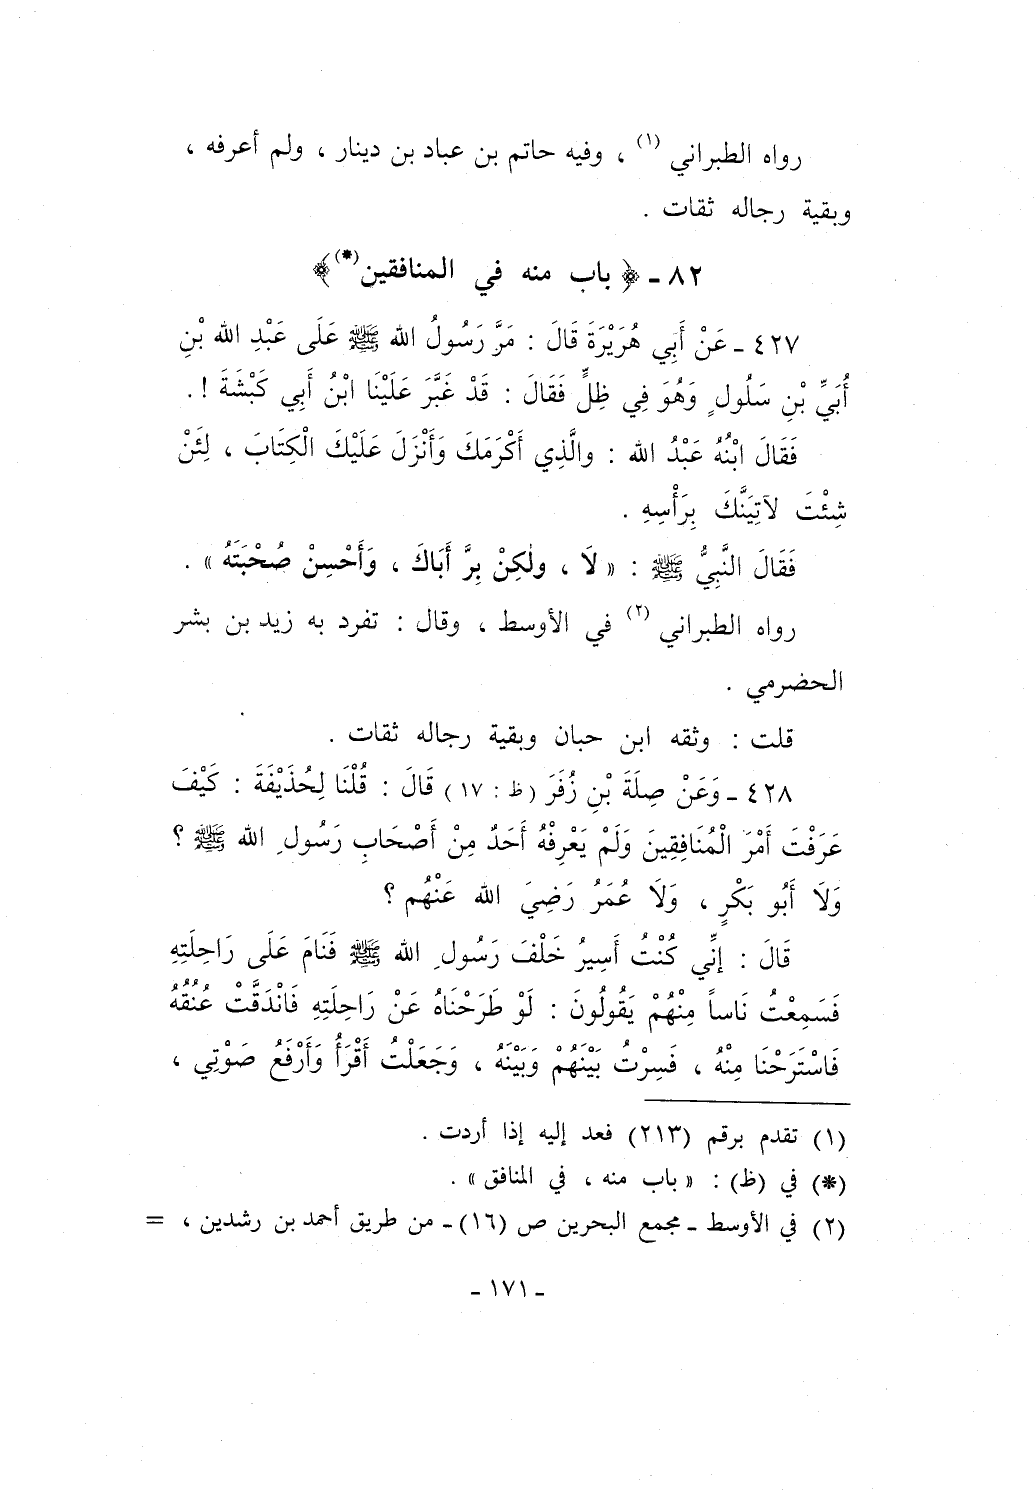 رواه الطبراني (١) ، وفيه حاتم بن عباد بن دينار ، ولم أعرفه ،
وبقية رجاله ثقات .
٨٢ ـ ﴿ باب منه في المنافقين(*)﴾
٤٢٧ ـ عَنْ أَبِي هُرَيْرَةَ قَالَ : مَرَّ رَسُولُ الله ﷺ عَلَى عَبْدِ الله بْنِ
أُبَيِّ بْنِ سَلُولٍ وَهُوَ فِي ظِلٍّ فَقَالَ : قَدْ غَبَّرَ عَلَيْنَا ابْنُ أَبِي كَبْشَةَ !.
فَقَالَ ابْنُهُ عَبْدُ الله : والَّذِي أَكْرَمَكَ وَأَنْزَلَ عَلَيْكَ الْكِتَابَ ، لِئَنْ
شِئْتَ لآتِيَنَّكَ بِرَأْسِهِ .
فَقَالَ النَّبِيُّ ﷺ : « لَا ، ولٰكِنْ بِرَّ أَبَاكَ ، وَأَحْسِنْ صُحْبَتَهُ » .
رواه الطبراني (٢) في الأوسط ، وقال : تفرد به زيد بن بشر
الحضرمي .
قلت : وثقه ابن حبان وبقية رجاله ثقات .
٤٢٨ ـ وَعَنْ صِلَةَ بْنِ زُفَرَ ( ظ : ١٧ ) قَالَ : قُلْنَا لِحُذَيْفَةَ : كَيْفَ
عَرَفْتَ أَمْرَ الْمُنَافِقِينَ وَلَمْ يَعْرِفْهُ أَحَدٌ مِنْ أَصْحَابِ رَسُولِ الله ﷺ ؟
وَلَا أَبُو بَكْرٍ ، وَلَا عُمَرُ رَضِيَ الله عَنْهُم ؟
قَالَ : إِنِّي كُنْتُ أَسِيرُ خَلْفَ رَسُولِ الله ﷺ فَنَامَ عَلَى رَاحِلَتِهِ
فَسَمِعْتُ نَاساً مِنْهُمْ يَقُولُونَ : لَوْ طَرَحْنَاهُ عَنْ رَاحِلَتِهِ فَانْدَقَّتْ عُنُقُهُ
فَاسْتَرَحْنَا مِنْهُ ، فَسِرْتُ بَيْنَهُمْ وَبَيْنَهُ ، وَجَعَلْتُ أَقْرَأُ وَأَرْفَعُ صَوْتِي ،
(١) تقدم برقم (٢١٣) فعد إليه إذا أردت .
(*) في (ظ) : « باب منه ، في المنافق » .
(٢) في الأوسط ـ مجمع البحرين ص (١٦) ـ من طريق أحمد بن رشدين ، =
ـ ١٧١ ـ